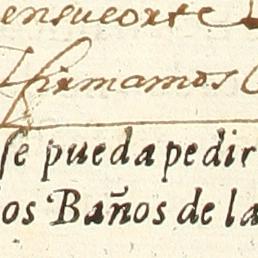 ensucorte
firmamos
se pueda pedir
os Baños de la